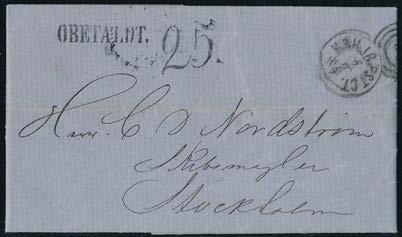 OBETALDT. 25.
Herr C D Nordström
Skibsmegler
Stockholm